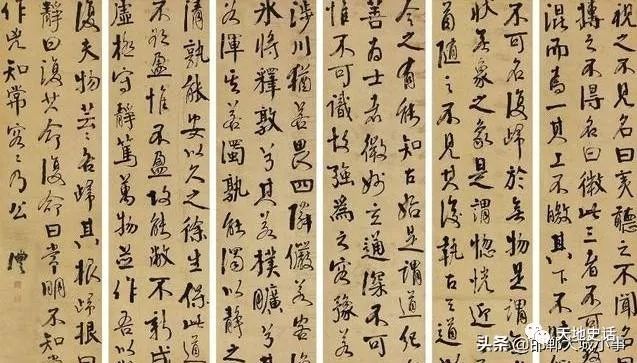 視之不見名曰夷聽之不聞名
搏之不得名曰微此三者不可
混而為一其上不皦其下不
不可名復歸於無物是謂無
狀無象之象是謂惚恍迎
首隨之不見其後執古之道
今之有能知古始是謂道紀
善士者微妙玄通深不可
惟不可識故強為之容豫若
涉川猶若畏四隣儼若客
氷將釋敦兮其若樸曠兮其
若渾兮若濁孰能濁以靜之
清孰能安以久之徐生保此道
不欲盈惟不盈故能敝不新成
虛極守靜篤萬物並作吾以
復夫物芸芸各歸其根歸根
靜曰復其命復命曰常明不知
作凶知常容容乃公
天地史话
头条